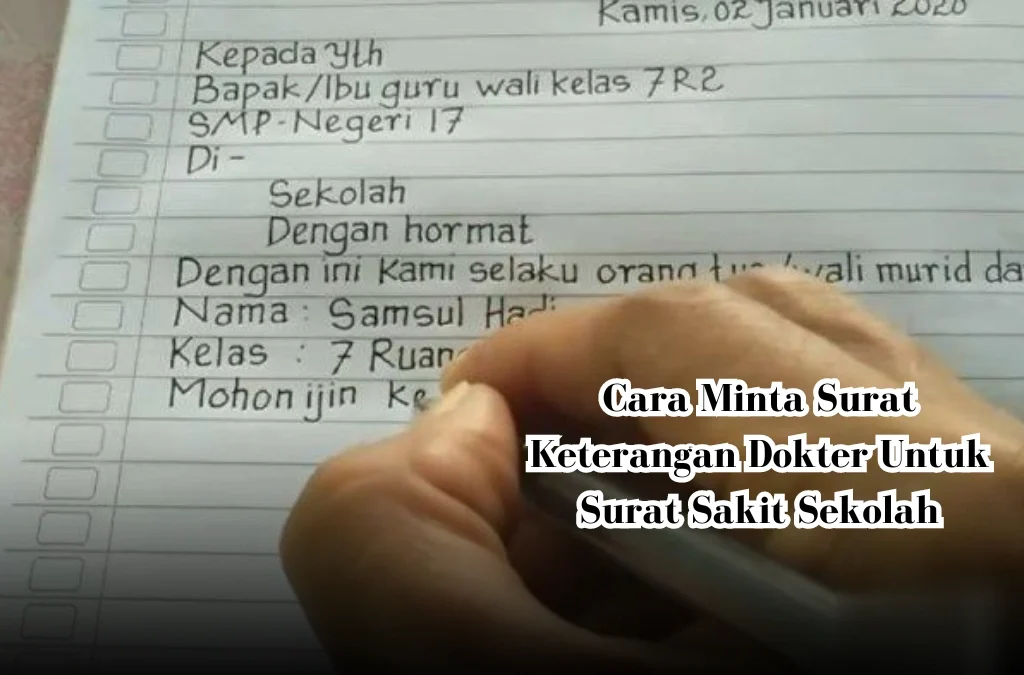 Kamis, 02 Januari 2020
Kepada Yth
Bapak/Ibu guru wali kelas 7R2
SMP-Negeri 17
Di -
Sekolah
Dengan hormat
Dengan ini Kami selaku orang tua/wali murid da
Nama : Samsul Hadi
Kelas : 7 Ruang
Mohon ijin ke
Cara Minta Surat
Keterangan Dokter Untuk
Surat Sakit Sekolah